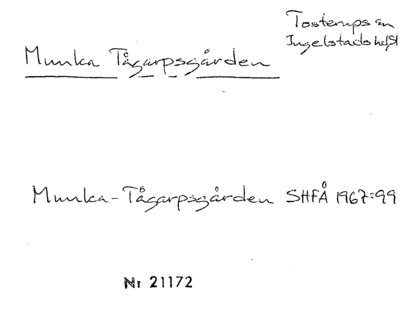 Tosterups sn
Ingelstads hd, Sk
Munka Tågarpsgården
Munka-Tågarpsgården SHFÅ 1967:99
Nr 21172